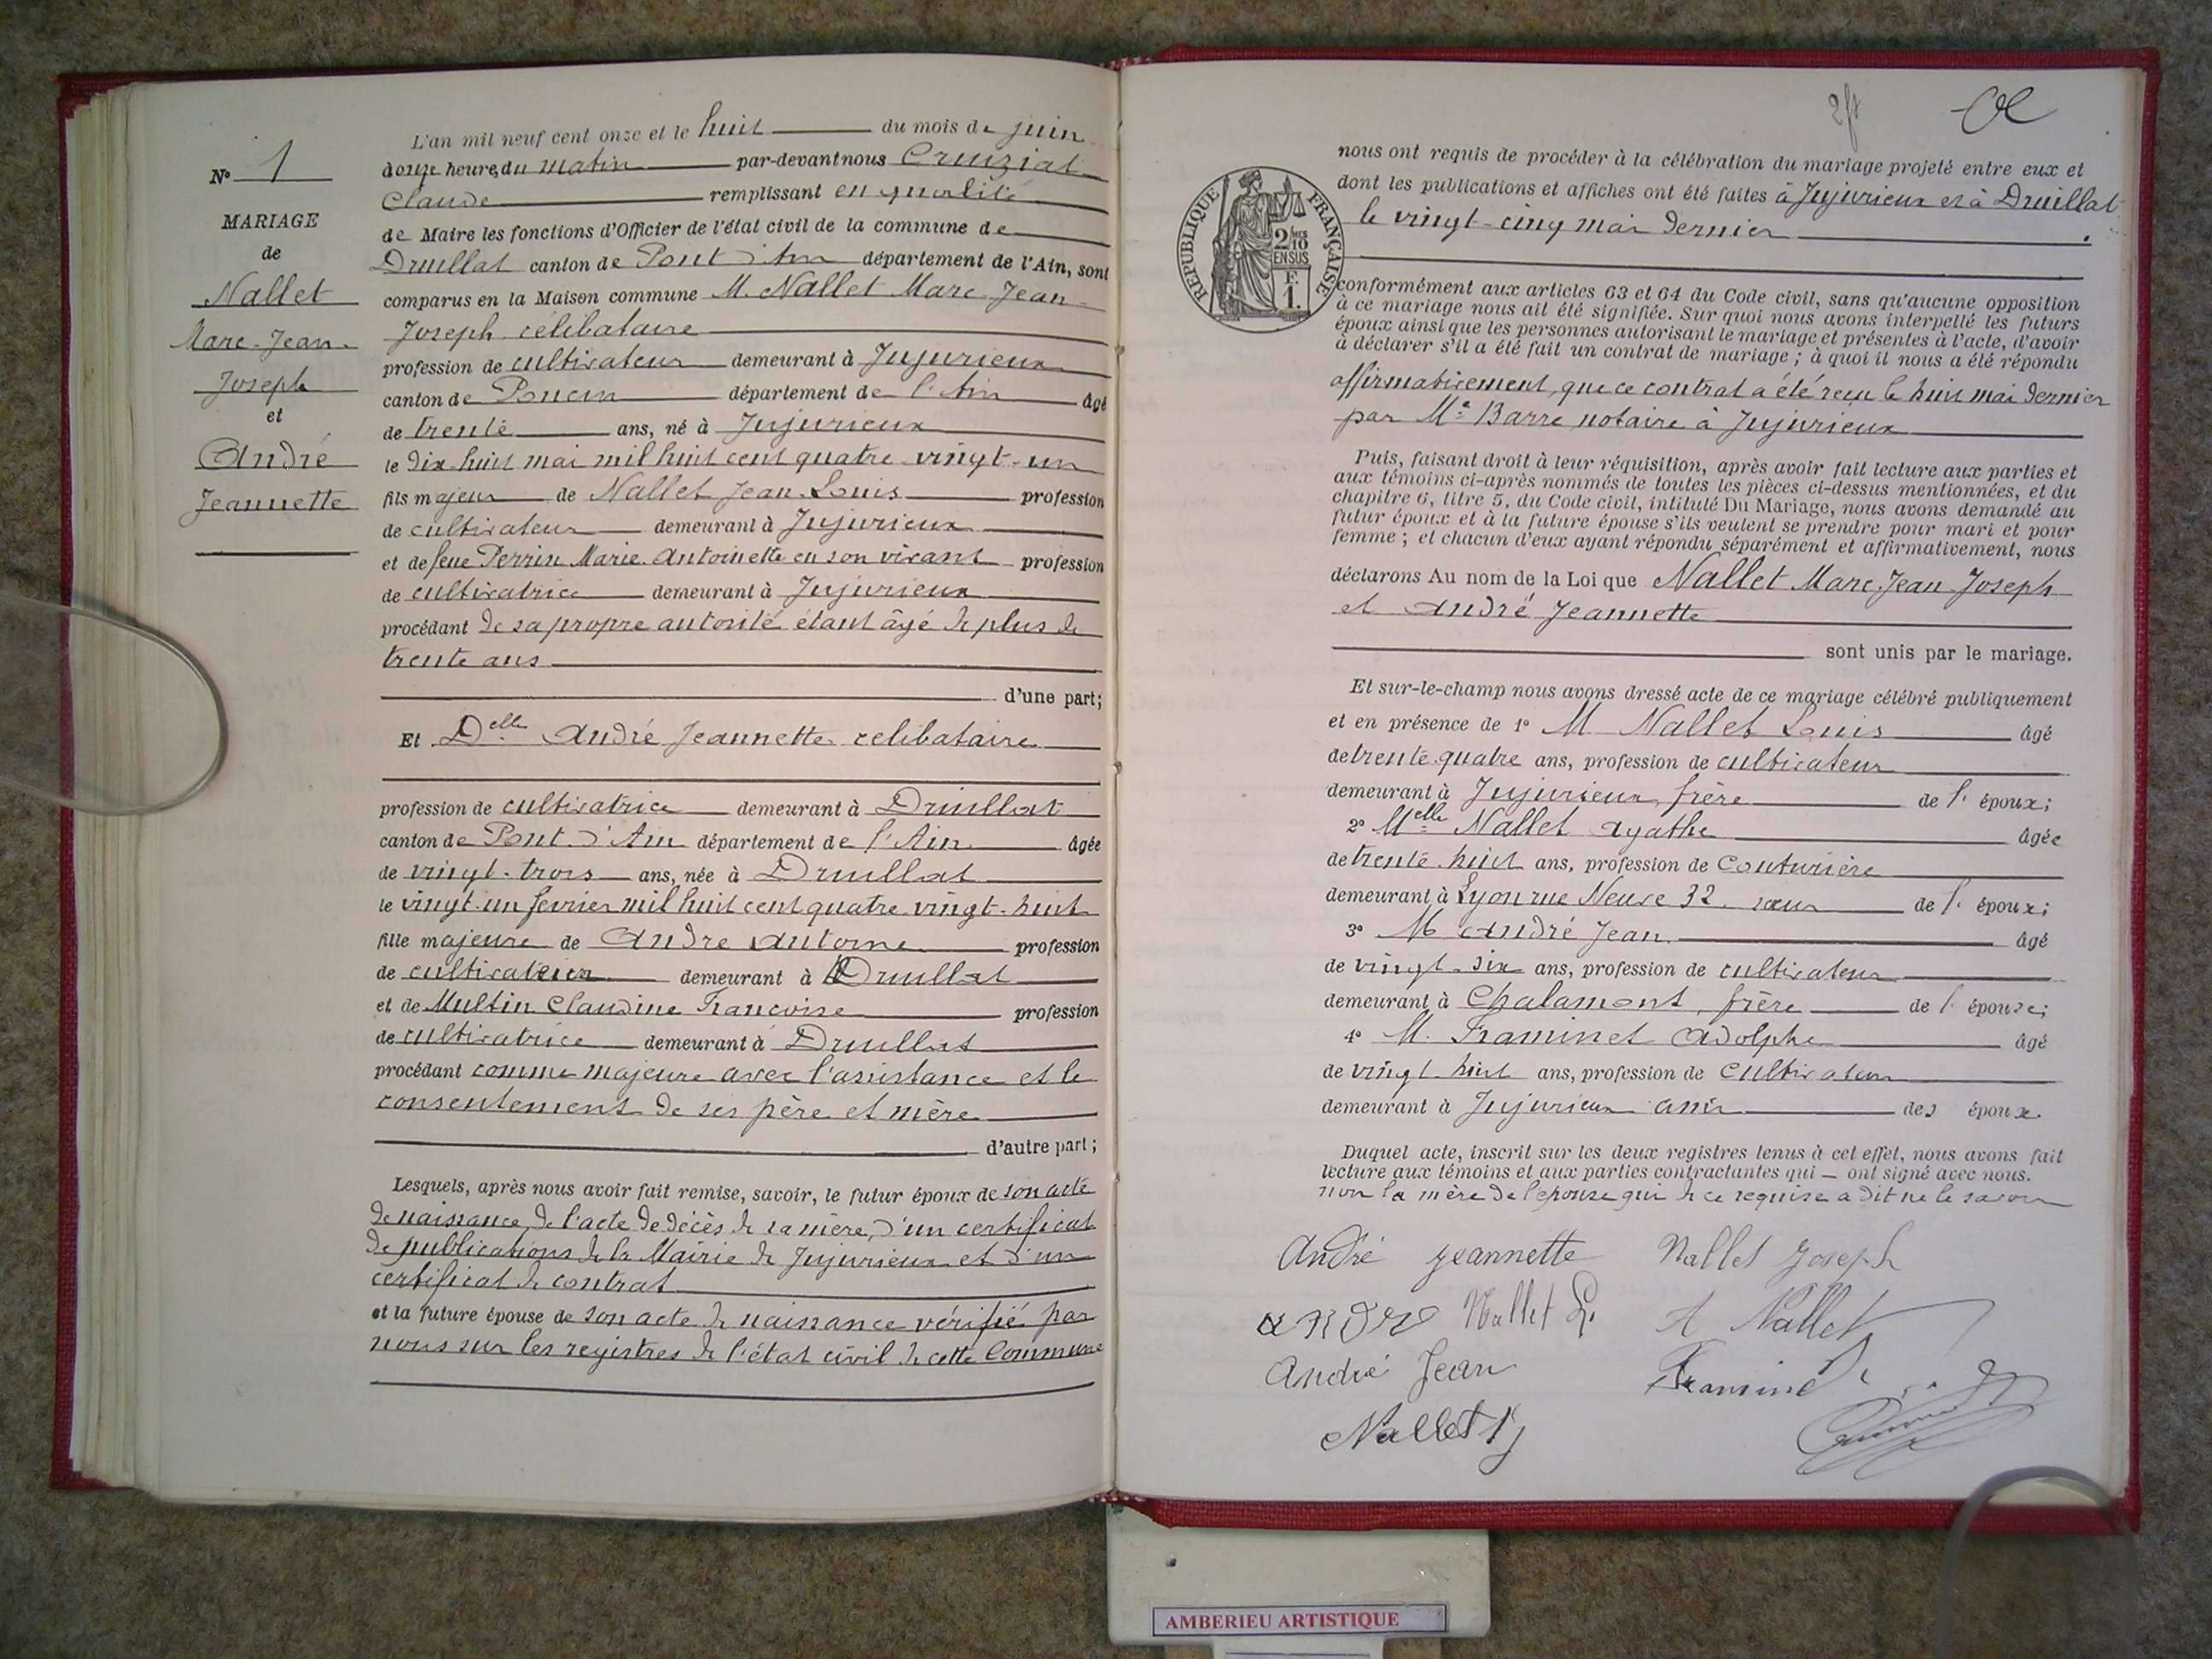 N° 1
MARIAGE
de
Nallet
Marc-Jean-
Joseph
et
André
Jeannette
L'an mil neuf cent onze et le huit du mois de juin
à onze heures du matin par-devant nous Cruiziat
Claude remplissant en qualité
de Maire les fonctions d'Officier de l'état civil de la commune de
Druillat canton de Pont d'Ain département de l'Ain, sont
comparus en la Maison commune M. Nallet Marc-Jean-
Joseph célibataire
profession de cultivateur demeurant à Jujurieux
canton de Poncin département de l'Ain âgé
de trente ans, né à Jujurieux
le dix-huit mai mil huit cent quatre-vingt-un
fils majeur de Nallet Jean-Louis profession
de cultivateur demeurant à Jujurieux
et de feue Perrin Marie Antoinette en son vivant profession
de cultivatrice demeurant à Jujurieux
procédant de sa propre autorité étant âgé de plus de
trente ans
d'une part;
Et Delle André Jeannette celibataire
profession de cultivatrice demeurant à Druillat
canton de Pont d'Ain département de l'Ain âgée
de vingt-trois ans, née à Druillat
le vingt-un fevrier mil huit cent quatre-vingt-huit
fille majeure de André Antoine profession
de cultivateur demeurant à Druillat
et de Multin Claudine Françoise profession
de cultivatrice demeurant à Druillat
procédant comme majeure avec l'assistance et le
consentement de ses père et mère
d'autre part;
Lesquels, après nous avoir fait remise, savoir, le futur époux de son acte
de naissance, de l'acte de décès de sa mère, d'un certificat
de publications de la Mairie de Jujurieux et d'un
certificat de contrat
et la future épouse de son acte de naissance vérifié par
nous sur les registres de l'état civil de cette Commune
nous ont requis de procéder à la célébration du mariage projeté entre eux et
dont les publications et affiches ont été faites à Jujurieux et à Druillat
le vingt-cinq mai dernier
RÉPUBLIQUE FRANÇAISE
2/10 MES
EN SUS
F.
1.
conformément aux articles 63 et 64 du Code civil, sans qu'aucune opposition
à ce mariage nous ait été signifiée. Sur quoi nous avons interpellé les futurs
époux ainsi que les personnes autorisant le mariage et présentes à l'acte, d'avoir
à déclarer s'il a été fait un contrat de mariage; à quoi il nous a été répondu
affirmativement, que ce contrat a été reçu le huit mai dernier
par Me Barre notaire à Jujurieux
Puis, faisant droit à leur réquisition, après avoir fait lecture aux parties et
aux témoins ci-après nommés de toutes les pièces ci-dessus mentionnées, et du
chapitre 6, titre 5, du Code civil, intitulé Du Mariage, nous avons demandé au
futur époux et à la future épouse s'ils veulent se prendre pour mari et pour
femme; et chacun d'eux ayant répondu séparément et affirmativement, nous
déclarons Au nom de la Loi que Nallet Marc-Jean-Joseph
et André Jeannette
sont unis par le mariage.
Et sur-le-champ nous avons dressé acte de ce mariage célébré publiquement
et en présence de 1° M Nallet Louis âgé
de trente-quatre ans, profession de cultivateur
demeurant à Jujurieux, frère de l'époux;
2° Melle Nallet Agathe âgée
de trente-huit ans, profession de couturière
demeurant à Lyon rue Neuve 32 sœur de l'époux;
3° M André Jean âgé
de vingt-six ans, profession de cultivateur
demeurant à Chalamont, frère de l'épouse;
4° M. Framinet Adolphe âgé
de vingt-huit ans, profession de cultivateur
demeurant à Jujurieux ami des époux.
Duquel acte, inscrit sur les deux registres tenus à cet effet, nous avons fait
lecture aux témoins et aux parties contractantes qui — ont signé avec nous.
non la mère de l'épouse qui de ce requise a dit ne le savoir
André Jeannette Nallet Joseph
André Nallet L. A Nallet
André Jean Framinet
Nallet
AMBERIEU ARTISTIQUE